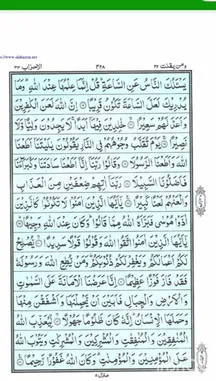 ومن يقنت ٢٢
الاحزاب ٣٣
يَسْـَٔلُكَ النَّاسُ عَنِ السَّاعَةِ ؕ قُلْ اِنَّمَا عِلْمُهَا عِنْدَ اللّٰهِ ؕ وَمَا
يُدْرِيْكَ لَعَلَّ السَّاعَةَ تَكُوْنُ قَرِيْبًا ۝ اِنَّ اللّٰهَ لَعَنَ الْكٰفِرِيْنَ
وَاَعَدَّ لَهُمْ سَعِيْرًا ۝ خٰلِدِيْنَ فِيْهَاۤ اَبَدًا ۚ لَا يَجِدُوْنَ وَلِيًّا وَّلَا
نَصِيْرًا ۝ يَوْمَ تُقَلَّبُ وُجُوْهُهُمْ فِي النَّارِ يَقُوْلُوْنَ يٰلَيْتَنَاۤ اَطَعْنَا اللّٰهَ
وَاَطَعْنَا الرَّسُوْلَا ۝ وَقَالُوْا رَبَّنَاۤ اِنَّاۤ اَطَعْنَا سَادَتَنَا وَكُبَرَآءَنَا
فَاَضَلُّوْنَا السَّبِيْلَا ۝ رَبَّنَاۤ اٰتِهِمْ ضِعْفَيْنِ مِنَ الْعَذَابِ
وَالْعَنْهُمْ لَعْنًا كَبِيْرًا ۝ يٰۤاَيُّهَا الَّذِيْنَ اٰمَنُوْا لَا تَكُوْنُوْا كَالَّذِيْنَ
اٰذَوْا مُوْسٰى فَبَرَّاَهُ اللّٰهُ مِمَّا قَالُوْا ؕ وَكَانَ عِنْدَ اللّٰهِ وَجِيْهًا ۝
يٰۤاَيُّهَا الَّذِيْنَ اٰمَنُوا اتَّقُوا اللّٰهَ وَقُوْلُوْا قَوْلًا سَدِيْدًا ۝ يُّصْلِحْ
لَكُمْ اَعْمَالَكُمْ وَيَغْفِرْ لَكُمْ ذُنُوْبَكُمْ ؕ وَمَنْ يُّطِعِ اللّٰهَ وَرَسُوْلَهٗ
فَقَدْ فَازَ فَوْزًا عَظِيْمًا ۝ اِنَّا عَرَضْنَا الْاَمَانَةَ عَلَى السَّمٰوٰتِ
وَالْاَرْضِ وَالْجِبَالِ فَاَبَيْنَ اَنْ يَّحْمِلْنَهَا وَاَشْفَقْنَ مِنْهَا
وَحَمَلَهَا الْاِنْسَانُ ؕ اِنَّهٗ كَانَ ظَلُوْمًا جَهُوْلًا ۝ لِّيُعَذِّبَ اللّٰهُ
الْمُنٰفِقِيْنَ وَالْمُنٰفِقٰتِ وَالْمُشْرِكِيْنَ وَالْمُشْرِكٰتِ وَيَتُوْبَ اللّٰهُ
عَلَى الْمُؤْمِنِيْنَ وَالْمُؤْمِنٰتِ ؕ وَكَانَ اللّٰهُ غَفُوْرًا رَّحِيْمًا ۝